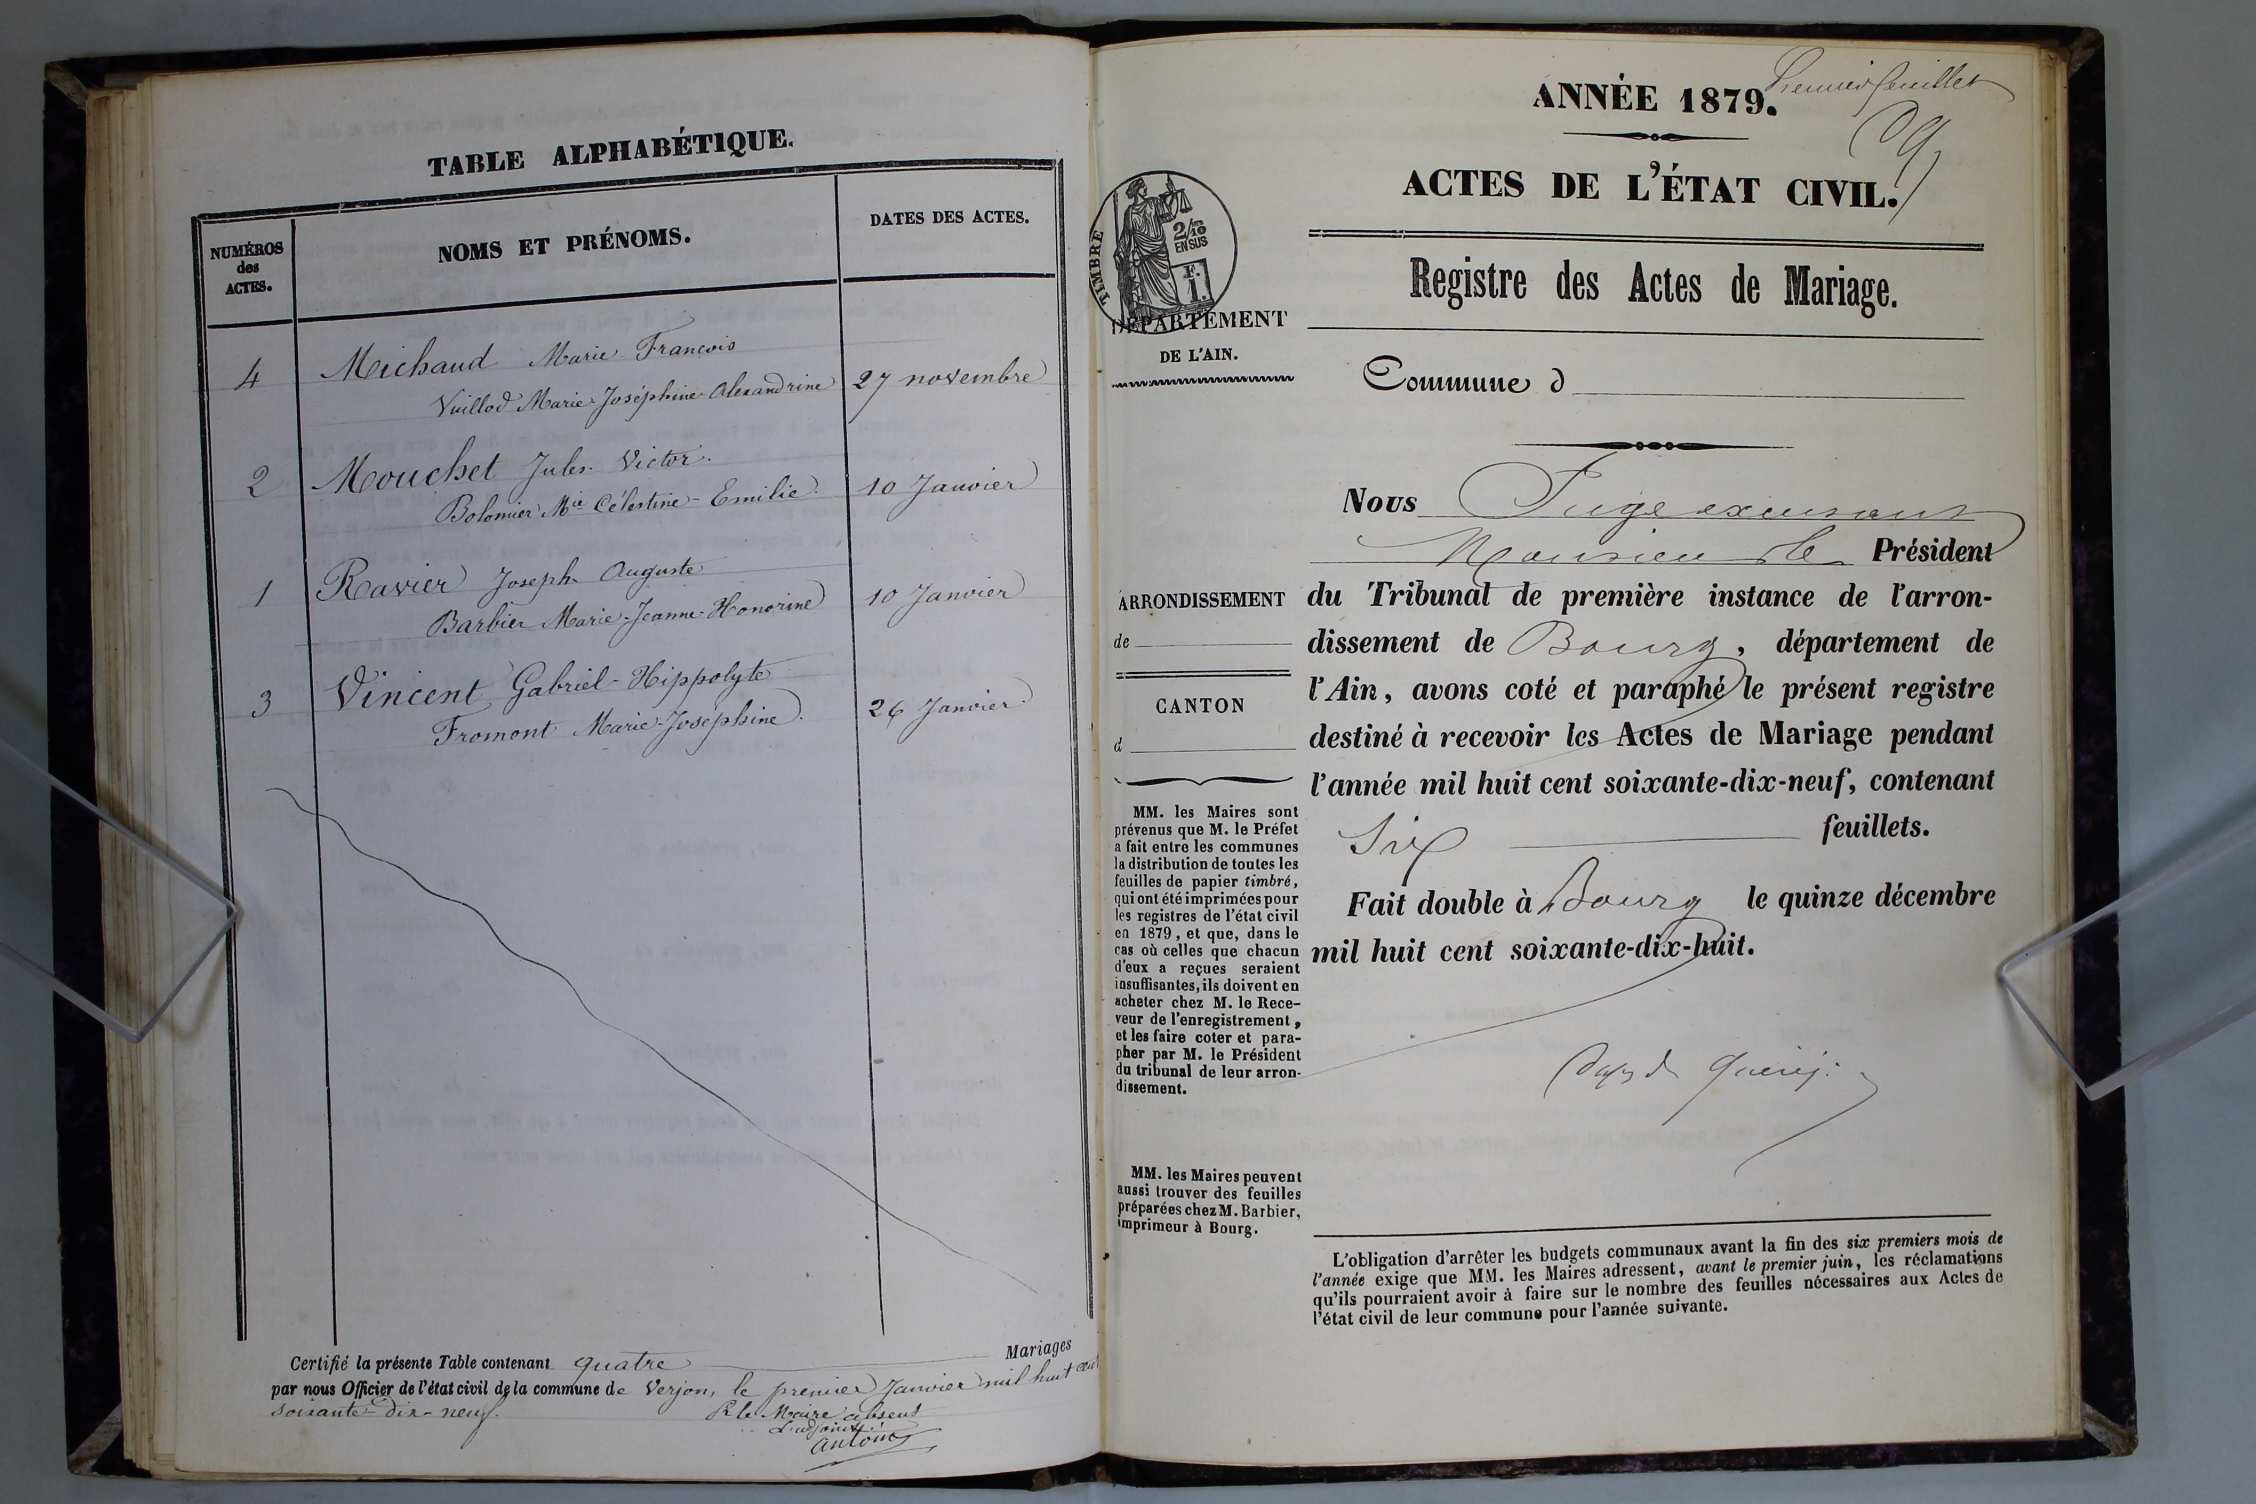 TABLE ALPHABÉTIQUE.
NUMÉROS
des
ACTES.
NOMS ET PRÉNOMS.
DATES DES ACTES.
4 Michaud Marie François
Vuillod Marie-Joséphine-Alexandrine 27 novembre
2 Mouchet Jules-Victor.
Bolomier Mie Célestine-Emilie. 10 Janvier
1 Ravier Joseph-Auguste
Barbier Marie-Jeanne-Honorine 10 Janvier
3 Vincent Gabriel-Hippolyte
Fromont Marie-Joséphine. 26 Janvier
Certifié la présente Table contenant quatre Mariages
par nous Officier de l'état civil de la commune de Verjon, le premier Janvier mil huit cent
soixante-dix-neuf.
P. le Maire absent
L'adjoint.
Antoine
ANNÉE 1879.
Premier feuillet
ACTES DE L'ÉTAT CIVIL.
Registre des Actes de Mariage.
TIMBRE
2/10
EN SUS
F.
1.
DÉPARTEMENT
DE L'AIN.
Commune d
ARRONDISSEMENT
de
CANTON
d
MM. les Maires sont
prévenus que M. le Préfet
a fait entre les communes
la distribution de toutes les
feuilles de papier timbré,
qui ont été imprimées pour
les registres de l'état civil
en 1879, et que, dans le
cas où celles que chacun
d'eux a reçues seraient
insuffisantes, ils doivent en
acheter chez M. le Rece-
veur de l'enregistrement,
et les faire coter et para-
pher par M. le Président
du tribunal de leur arron-
dissement.
MM. les Maires peuvent
aussi trouver des feuilles
préparées chez M. Barbier,
imprimeur à Bourg.
Nous Juge
Monsieur le Président
du Tribunal de première instance de l'arron-
dissement de Bourg, département de
l'Ain, avons coté et paraphé le présent registre
destiné à recevoir les Actes de Mariage pendant
l'année mil huit cent soixante-dix-neuf, contenant
Six feuillets.
Fait double à Bourg le quinze décembre
mil huit cent soixante-dix-huit.
L'obligation d'arrêter les budgets communaux avant la fin des six premiers mois de
l'année exige que MM. les Maires adressent, avant le premier juin, les réclamations
qu'ils pourraient avoir à faire sur le nombre des feuilles nécessaires aux Actes de
l'état civil de leur commune pour l'année suivante.